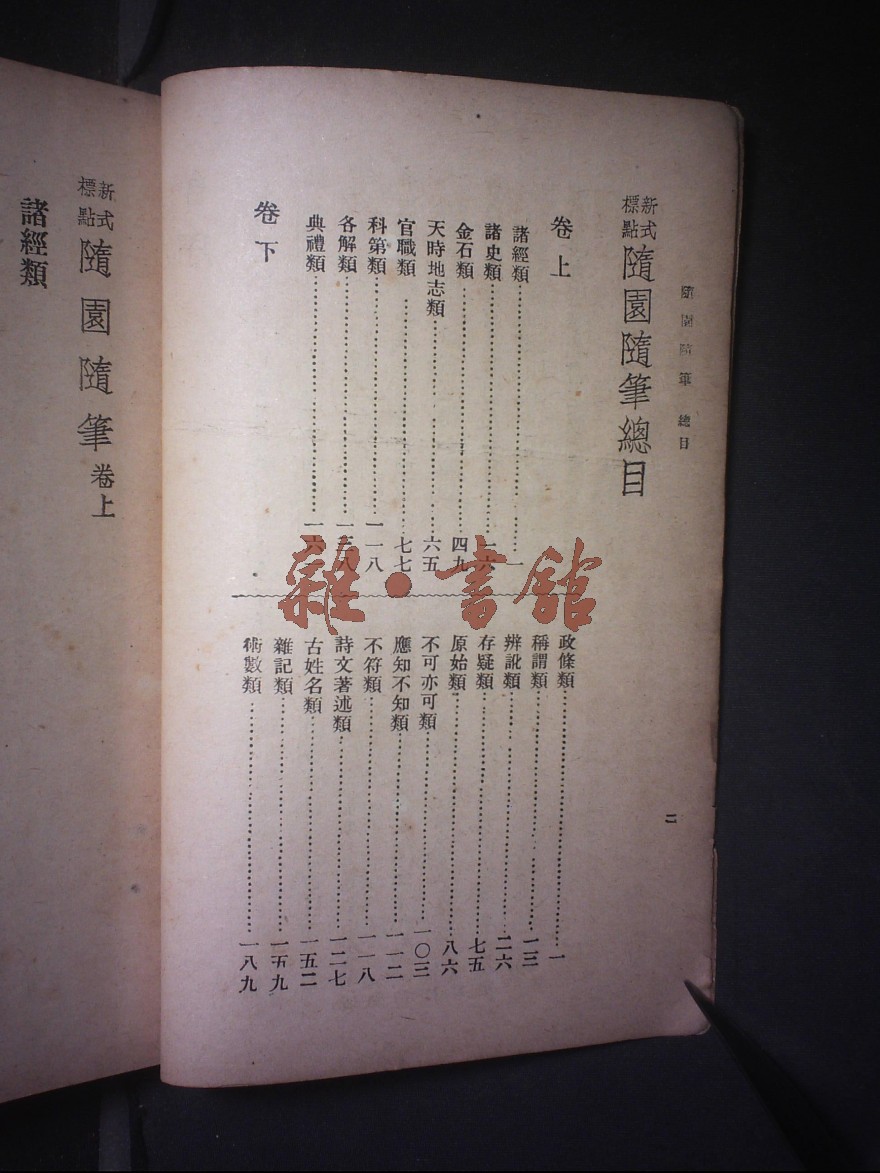 隨園隨筆 總目
二
新式標點 隨園隨筆總目
卷上
諸經類 一
諸史類 一六
金石類 四九
天時地志類 六五
官職類 七七
科第類 一一八
各解類
典禮類
卷下
政條類 一
稱謂類 一三
辨訛類 二六
存疑類 七五
原始類 八六
不可亦可類 一〇三
應知不知類 一一二
不符類 一一八
詩文著述類 一二七
古姓名類 一五二
雜記類 一五九
術數類 一八九
新式標點 隨園隨筆 卷上
諸經類
雜·書館